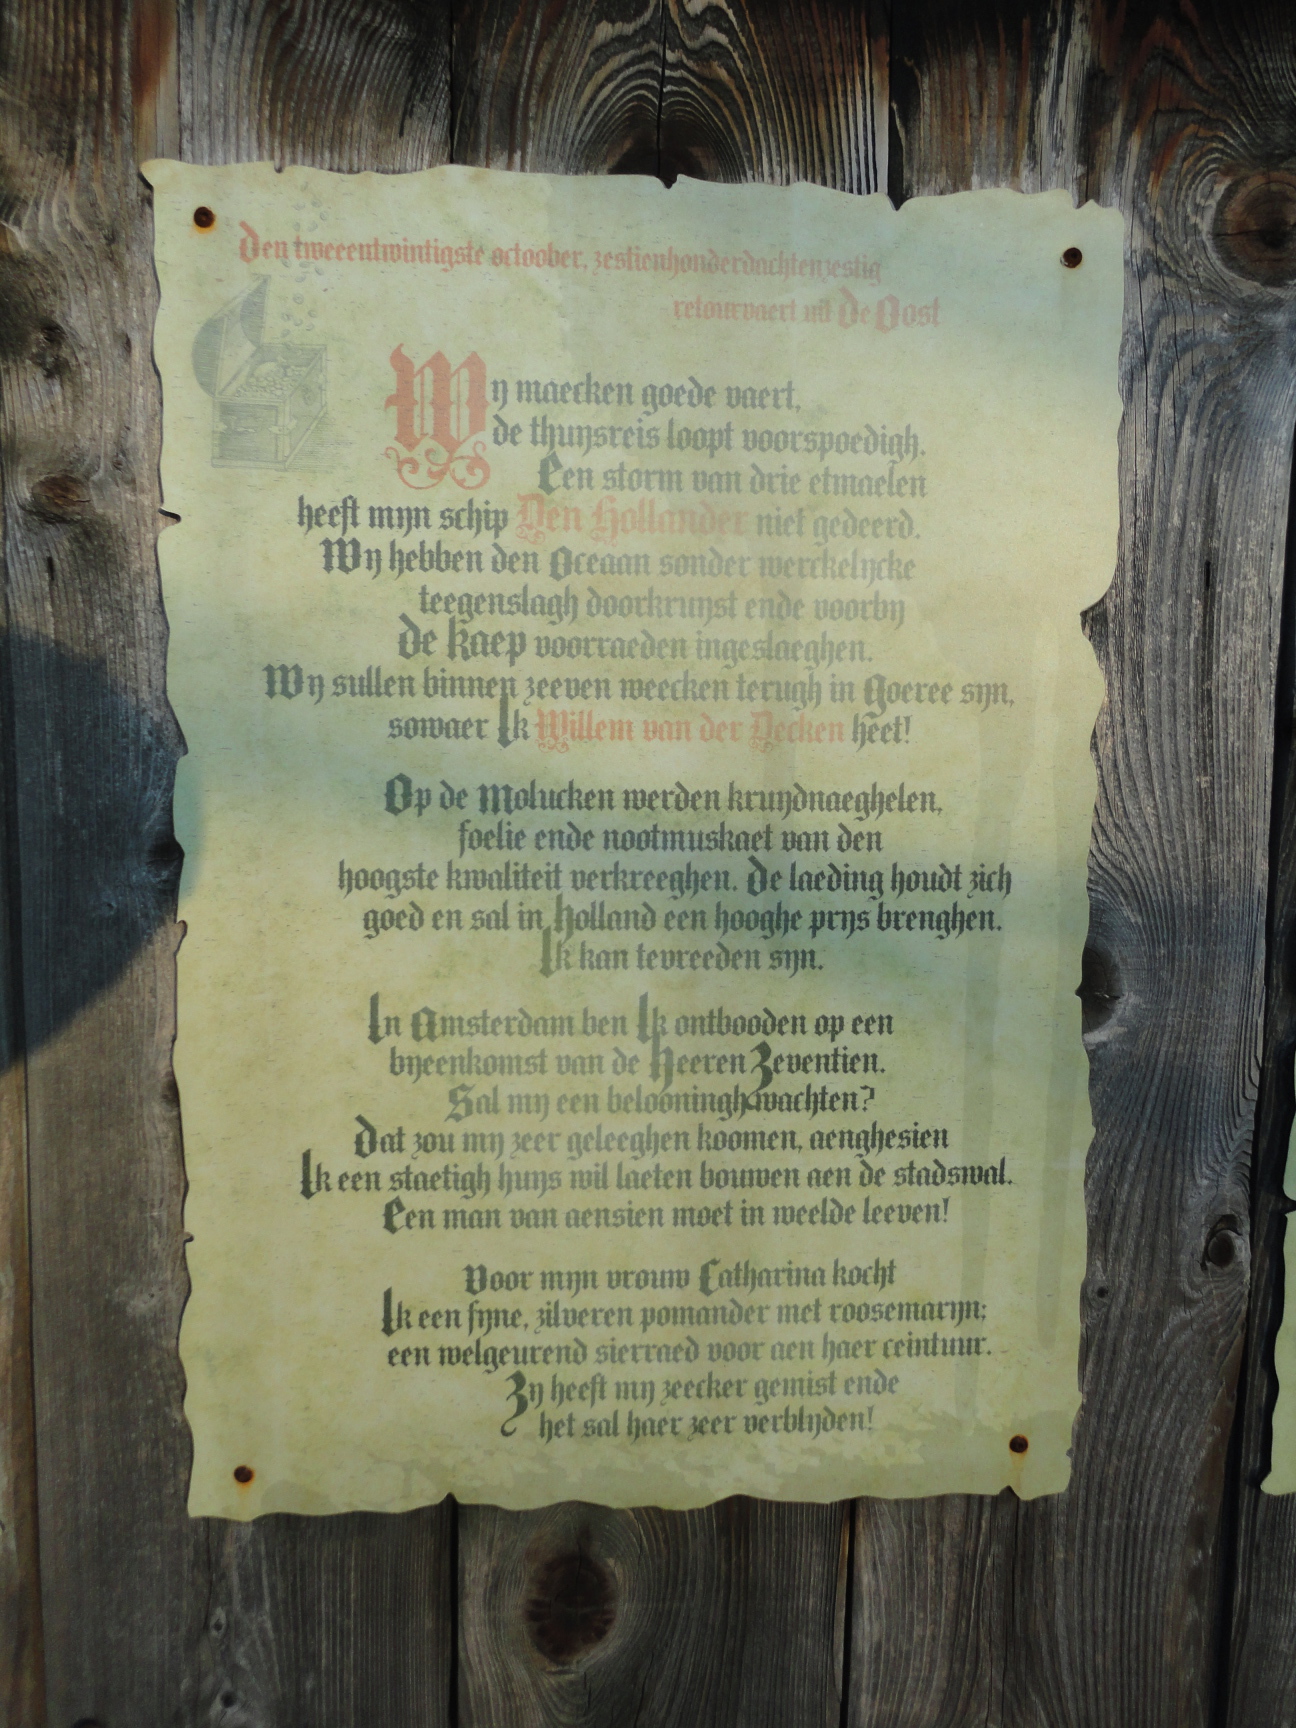 Den tweeentwintigste octoober, zestienhonderdachtenzestig
retourvaert uit De Oost
Wy maecken goede vaert,
de thuysreis loopt voorspoedigh.
Een storm van drie etmaelen
heeft myn schip Den Hollander niet gedeerd.
Wy hebben den Oceaan sonder werckelycke
teegenslagh doorkruyst ende voorby
de Kaep voorraeden ingeslaeghen.
Wy sullen binnen zeeven weecken terugh in Goeree syn,
sowaer Ik Willem van der Decken heet!
Op de Molucken werden kruydnaeghelen,
foelie ende nootmuskaet van den
hoogste kwaliteit verkreeghen. De laeding houdt zich
goed en sal in Holland een hooghe prys brenghen.
Ik kan tevreeden syn.
In Amsterdam ben Ik ontbooden op een
byeenkomst van de Heeren Zeventien.
Sal my een belooningh wachten?
Dat zou my zeer geleeghen koomen, aenghesien
Ik een staetigh huys wil laeten bouwen aen de stadswal.
Een man van aensien moet in weelde leeven!
Voor myn vrouw Catharina kocht
Ik een fyne, zilveren pomander met roosemaryn;
een welgeurend sierraed voor aen haer ceintuur.
Zy heeft my zeecker gemist ende
het sal haer zeer verblyden!